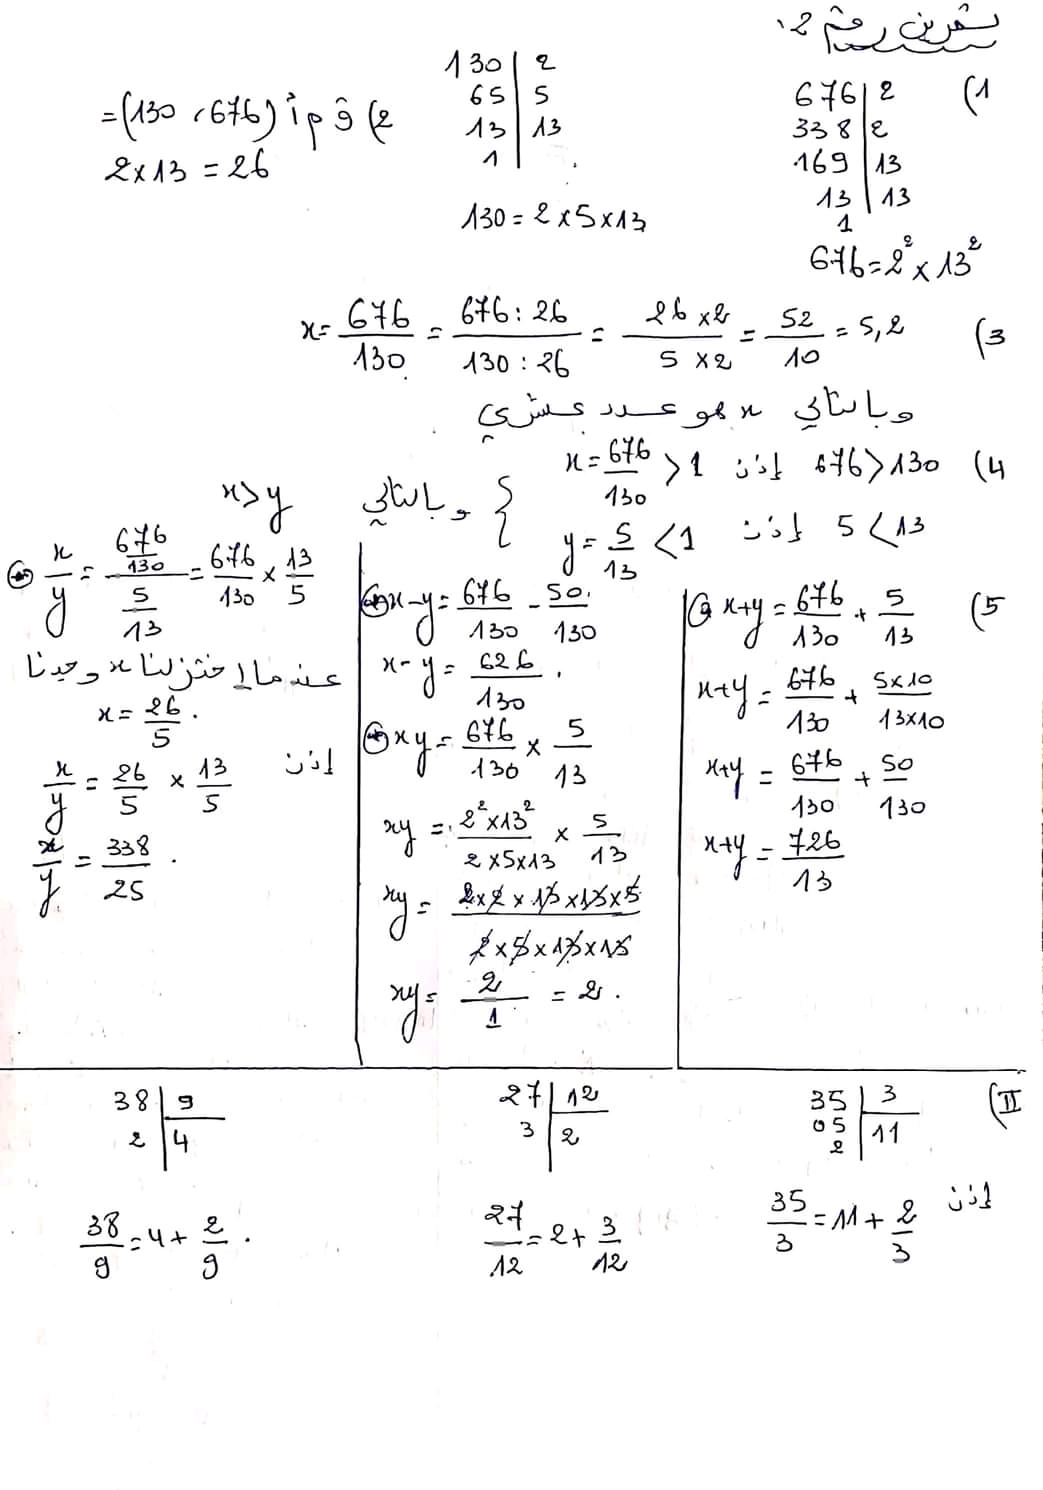 تمرين رقم 2.
1)
676 | 2
338 | 2
169 | 13
13 | 13
1
676 = 2² × 13²
130 | 2
65 | 5
13 | 13
1 |
130 = 2 × 5 × 13
2) ق م أ (676، 130) =
2 × 13 = 26
3) x = 676/130 = 676 : 26/130 : 26 = 26 × 2/5 × 2 = 52/10 = 5,2
وبالتالي x هو عدد عشري
4) 676 > 130 إذن x = 676/130 > 1
5 < 13 إذن y = 5/13 < 1
وبالتالي x > y
5) x+y = 676/130 + 5/13
x+y = 676/130 + 5×10/13×10
x+y = 676/130 + 50/130
x+y = 726/13
x-y = 676/130 - 50/130
x-y = 626/130 .
xy = 676/130 × 5/13
xy = 2²×13²/2×5×13 × 5/13
xy = 2×2×13×13×5/2×5×13×13
xy = 2/1 = 2 .
x/y = 676/130/5/13 = 676/130 × 13/5
عندما إختزلنا x وجدنا
x = 26/5 .
إذن x/y = 26/5 × 13/5
x/y = 338/25 .
II)
35 | 3
05 | 11
2
إذن 35/3 = 11 + 2/3
27 | 12
3 | 2
27/12 = 2 + 3/12
38 | 9
2 | 4
38/9 = 4 + 2/9 .